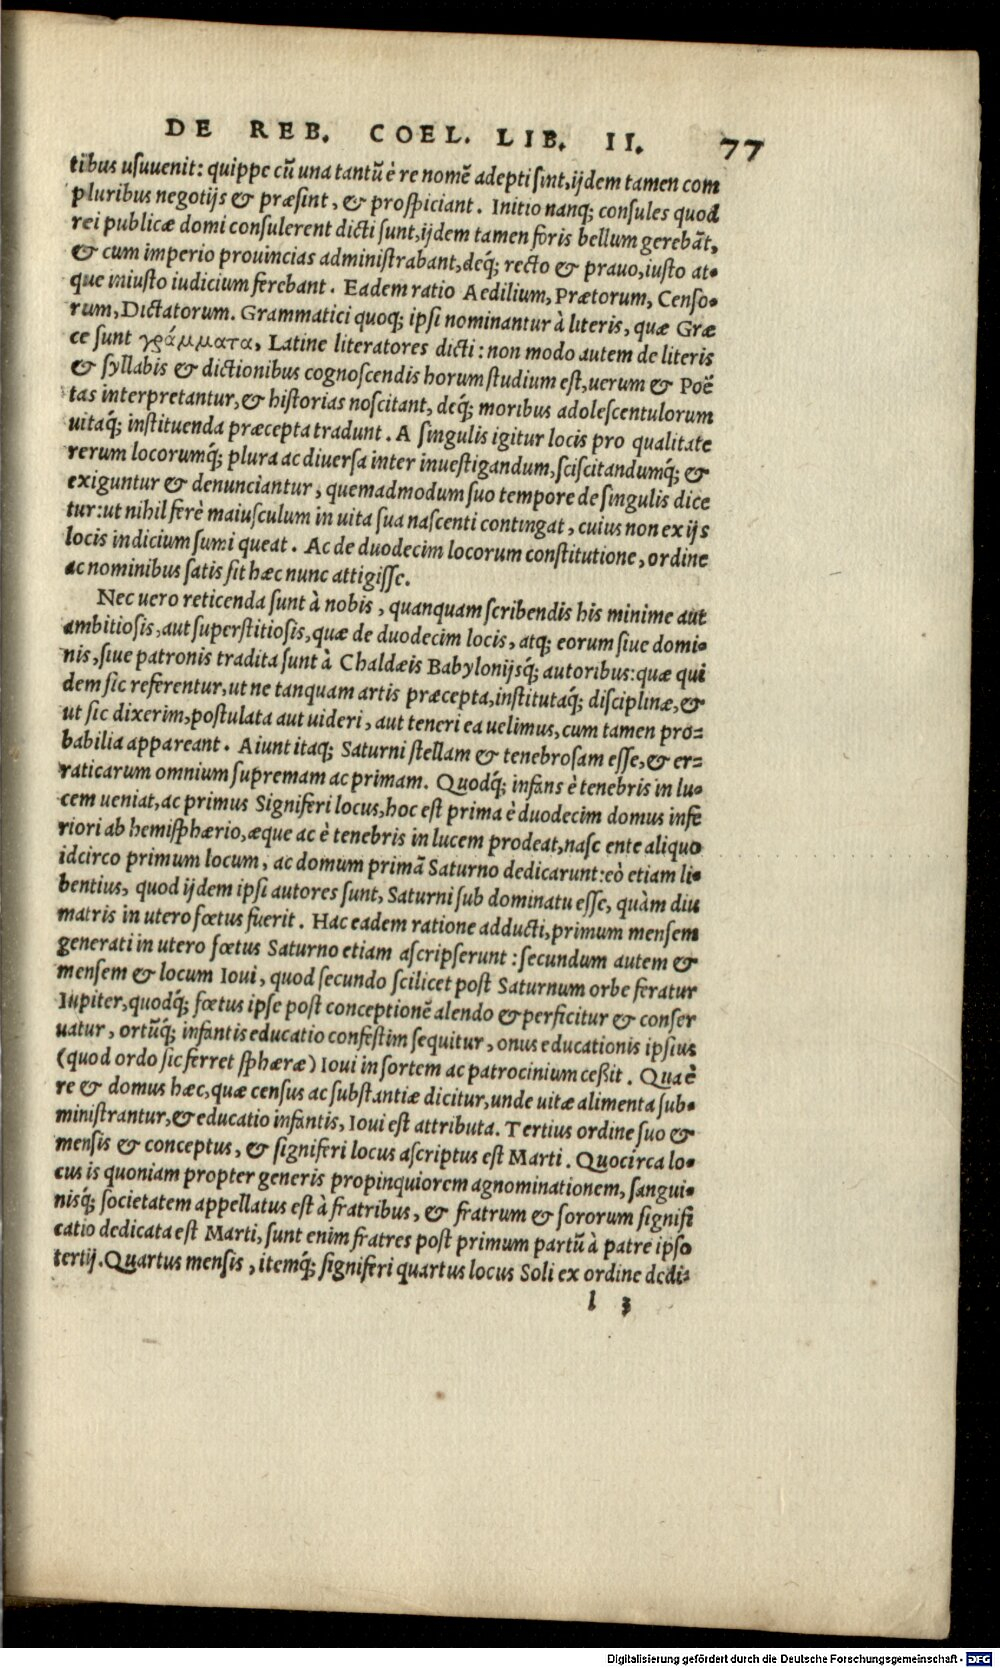 DE REB. COEL. LIB. II. 77
tibus usuuenit: quippe cũ una tantũ è re nomẽ adepti sint, ijdem tamen com
pluribus negotijs & præsint, & prospiciant. Initio nanq; consules quod
rei publicæ domi consulerent dicti sunt, ijdem tamen foris bellum gerebãt,
& cum imperio prouincias administrabant, deq́; recto & prauo, iusto at-
que iniusto iudicium ferebant. Eadem ratio Aedilium, Prætorum, Censo-
rum, Dictatorum. Grammatici quoq; ipsi nominantur à literis, quæ Græ
ce sunt γράμματα, Latine literatores dicti: non modo autem de literis
& syllabis & dictionibus cognoscendis horum studium est, uerum & Poë
tas interpretantur, & historias noscitant, deq́; moribus adolescentulorum
uitaq́; instituenda præcepta tradunt. A singulis igitur locis pro qualitate
rerum locorumq́; plura ac diuersa inter inuestigandum, sciscitandumq́; &
exiguntur & denunciantur, quemadmodum suo tempore de singulis dice
tur: ut nihil ferè maiusculum in uita sua nascenti contingat, cuius non ex ijs
locis indicium sumi queat. Ac de duodecim locorum constitutione, ordine
ac nominibus satis sit hæc nunc attigisse.
Nec uero reticenda sunt à nobis, quanquam scribendis his minime aut
ambitiosis, aut superstitiosis, quæ de duodecim locis, atq; eorum siue domi-
nis, siue patronis tradita sunt à Chaldæis Babylonijsq́; autoribus: quæ qui
dem sic referentur, ut ne tanquam artis præcepta, institutaq́; disciplinæ, &
ut sic dixerim, postulata aut uideri, aut teneri ea uelimus, cum tamen pro-
babilia appareant. Aiunt itaq; Saturni stellam & tenebrosam esse, & er-
raticarum omnium supremam ac primam. Quodq́; infans è tenebris in lu-
cem ueniat, ac primus Signiferi locus, hoc est prima è duodecim domus infe
riori ab hemisphærio, æque ac è tenebris in lucem prodeat, nasc ente aliquo
idcirco primum locum, ac domum primã Saturno dedicarunt: eò etiam li-
bentius, quod ijdem ipsi autores sunt, Saturni sub dominatu esse, quàm diu
matris in utero fœtus fuerit. Hac eadem ratione adducti, primum mensem
generati in utero fœtus Saturno etiam ascripserunt: secundum autem &
mensem & locum Ioui, quod secundo scilicet post Saturnum orbe feratur
Iupiter, quodq́; fœtus ipse post conceptionẽ alendo & perficitur & conser
uatur, ortũq́; infantis educatio confestim sequitur, onus educationis ipsius
(quod ordo sic ferret sphæræ) Ioui in sortem ac patrocinium ceßit. Qua è
re & domus hæc, quæ census ac substantiæ dicitur, unde uitæ alimenta sub-
ministrantur, & educatio infantis, Ioui est attributa. Tertius ordine suo &
mensis & conceptus, & signiferi locus ascriptus est Marti. Quocirca lo-
cus is quoniam propter generis propinquiorem agnominationem, sangui-
nisq́; societatem appellatus est à fratribus, & fratrum & sororum signifi
catio dedicata est Marti, sunt enim fratres post primum partũ à patre ipso
tertij. Quartus mensis, itemq́; signiferi quartus locus Soli ex ordine dedi-
l 3
Digitalisierung gefördert durch die Deutsche Forschungsgemeinschaft - DFG